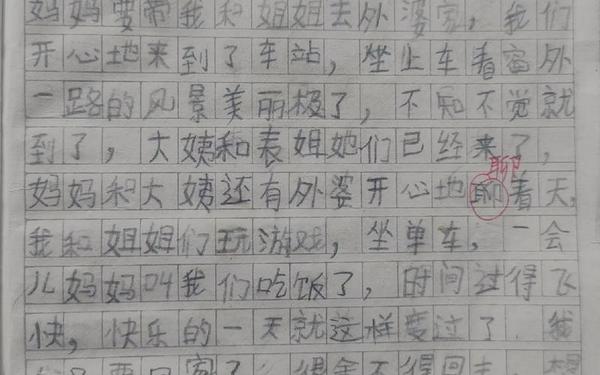 妈妈要带我和姐姐去外婆家，我们
开心地来到了车站，坐上车看窗外
一路的风景美丽极了，不知不觉就
到了，大姨和表姐她们已经来了，
聊
妈妈和大姨还有外婆开心地聊着天，
我和姐姐们玩游戏，坐单车，一会
儿妈妈叫我们吃饭了，时间过得飞
快，快乐的一天就这样度过了 我
要回家了 得回去